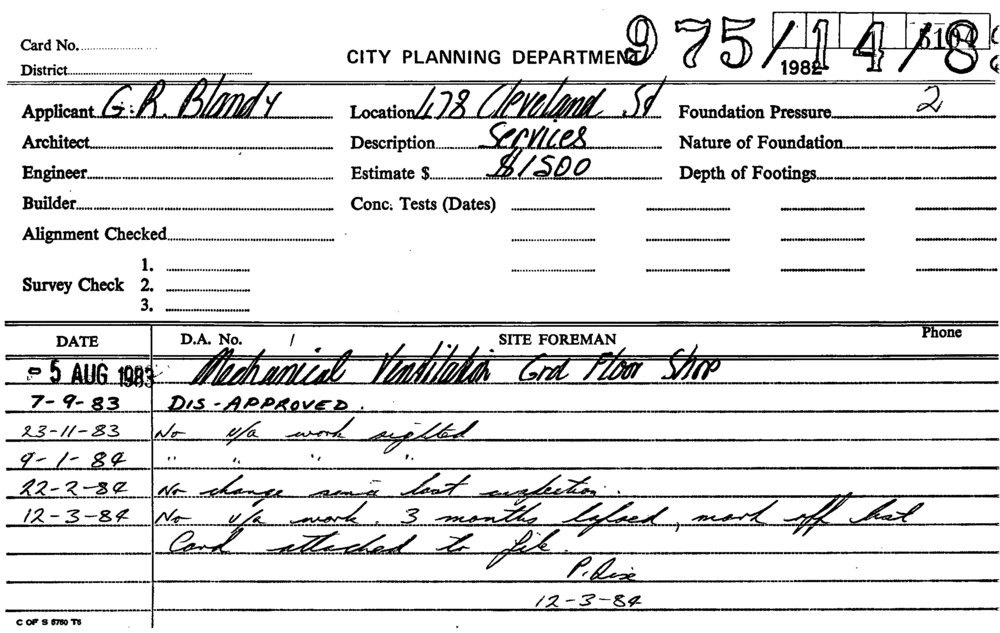 Card No.
CITY PLANNING DEPARTMENT
975/14/8
1982
District
Applicant G. R. Blandy
Location 478 Cleveland St
Foundation Pressure 2
Architect
Description Services
Nature of Foundation
Engineer
Estimate $ $1500
Depth of Footings
Builder
Conc. Tests (Dates)
Alignment Checked
1.
Survey Check 2.
3.
DATE D.A. No. / SITE FOREMAN Phone
5 AUG 1983 Mechanical Ventilation Grd Floor Shop
7-9-83 DIS-APPROVED.
23-11-83 No u/a work sighted
9-1-84 " " " "
22-2-84 No change since last inspection.
12-3-84 No u/a work. 3 months lapsed, mark off list
Card attached to file.
12-3-84
C OF S 5750 T5